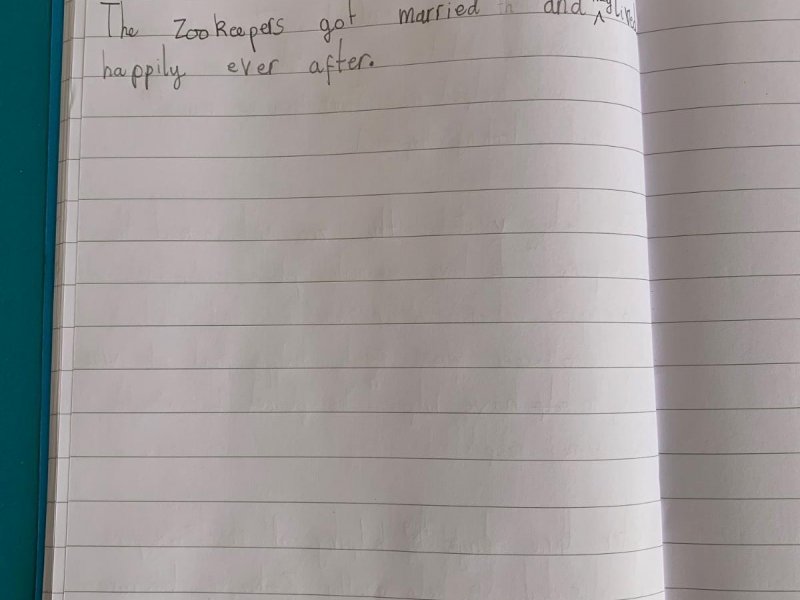 The Zookeepers got married and lived
happily ever after.